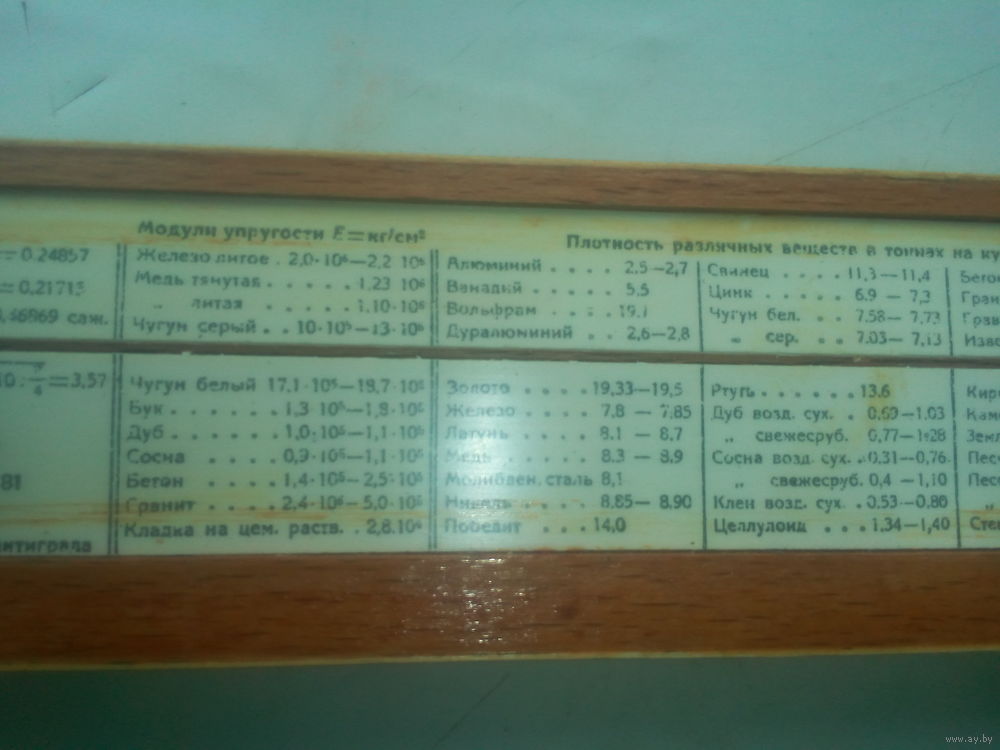 Модули упругости E=кг/см²
Плотность различных веществ в тоннах на ку
= 0.24857
= 0,21715
саж.
Железо литое . 2,0·10⁶—2,2 10⁶
Медь тянутая . . . . . 1,23 10⁶
„ литая . . . . . 1.10·10⁶
Чугун серый . . 10·10⁵—13·10⁵
Алюминий . . . . 2,5—2,7
Ванадий . . . . . 5,5
Вольфрам . . . . 19,1
Дуралюминий . . 2,6—2,8
Свинец . . . . 11,3—11,4
Цинк . . . . . 6.9 — 7,3
Чугун бел. . . . 7.58— 7,73
„ сер. . . . 7.03— 7,13
Бето
Гран
Изве
=3,57
81
Чугун белый 17,1·10⁵—18,7·10⁵
Бук . . . . . . . 1,3·10⁵—1,8·10⁵
Дуб . . . . . . . 1,0·10⁵—1,1·10⁵
Сосна . . . . 0,9·10⁵—1,1·10⁵
Бетон . . . . 1,4·10⁵—2,5·10⁵
Гранит . . . . 2,4·10⁵—5,0·10⁵
Кладка на цем. раств. . 2,8.10⁴
Золото . . . . 19,33—19,5
Железо . . . . 7,8 — 7,85
Латунь . . . . 8.1 — 8.7
Медь . . . . . 8.3 — 8,9
Молибден. сталь 8,1
Никель . . . . 8.85— 8,90
Победит . . . . 14,0
Ртуть . . . . . . 13.6
Дуб возд. сух. . 0,69—1,03
„ свежесруб. 0,77—1,28
Сосна возд. сух. . 0,31—0,76
„ свежесруб. 0,4 — 1,10
Клен возд. сух. . 0.53—0,80
Целлулоид . . . 1.34—1,40
Кир
Кам
Земл
Песч
Пес
„
Сте
www.ay.by